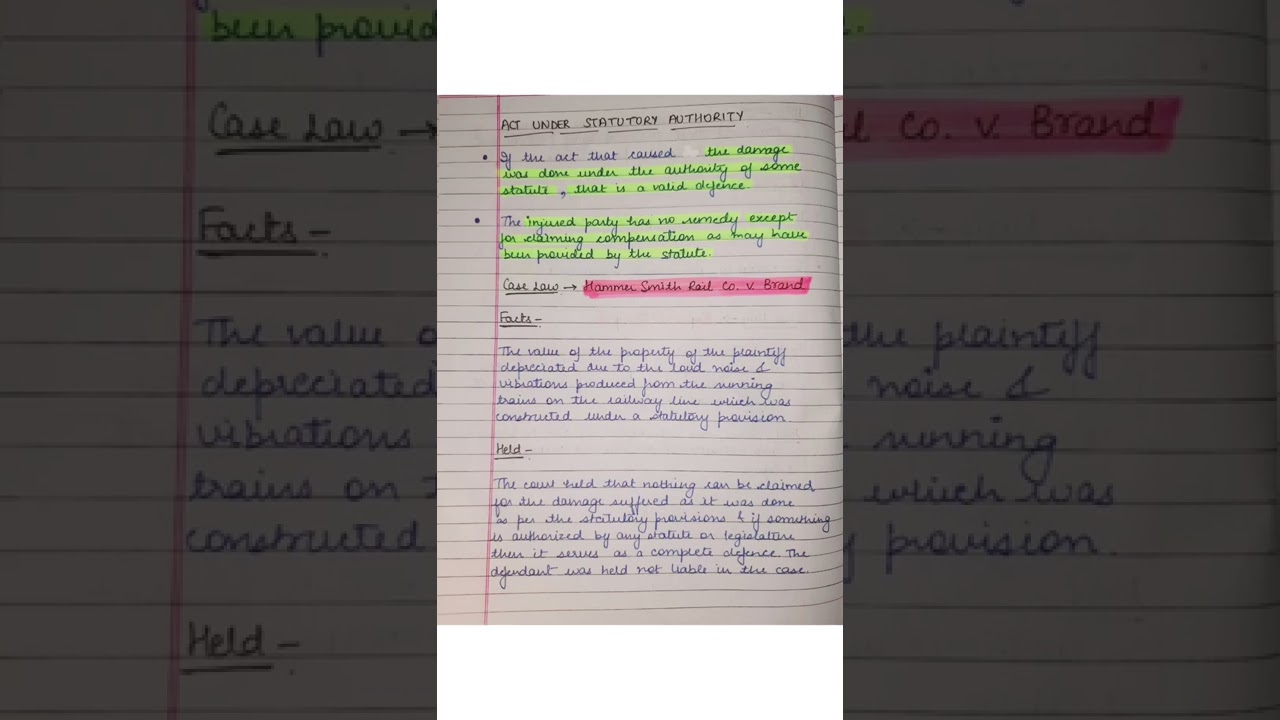 ACT UNDER STATUTORY AUTHORITY
• If the act that caused the damage
was done under the authority of some
statute, that is a valid defence.
• The injured party has no remedy except
for claiming compensation as may have
been provided by the statute.
Case Law → Hammer Smith Rail Co. v. Brand
Facts -
The value of the property of the plaintiff
depreciated due to the loud noise &
vibrations produced from the running
trains on the railway line which was
constructed under a statutory provision.
Held -
The court held that nothing can be claimed
for the damage suffered as it was done
as per the statutory provisions & if something
is authorized by any statute or legislature
then it serves as a complete defence. The
defendant was held not liable in the case.